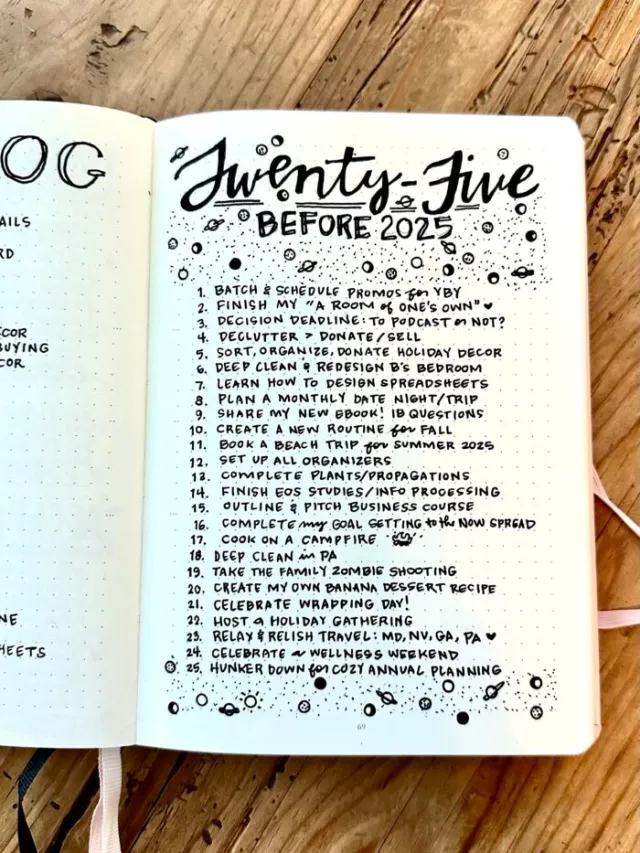 OG
AILS
RD
COR
BUYING
COR
NE
HEETS
Twenty-Five
BEFORE 2025
1. BATCH & SCHEDULE PROMOS for YBY
2. FINISH MY "A ROOM of ONE'S OWN" ♥
3. DECISION DEADLINE: TO PODCAST or NOT?
4. DECLUTTER > DONATE/SELL
5. SORT, ORGANIZE, DONATE HOLIDAY DECOR
6. DEEP CLEAN & REDESIGN B'S BEDROOM
7. LEARN HOW TO DESIGN SPREADSHEETS
8. PLAN A MONTHLY DATE NIGHT/TRIP
9. SHARE MY NEW EBOOK! 18 QUESTIONS
10. CREATE A NEW ROUTINE for FALL
11. BOOK A BEACH TRIP for SUMMER 2025
12. SET UP ALL ORGANIZERS
13. COMPLETE PLANTS/PROPAGATIONS
14. FINISH EOS STUDIES/INFO PROCESSING
15. OUTLINE & PITCH BUSINESS COURSE
16. COMPLETE my GOAL SETTING to the NOW SPREAD
17. COOK ON A CAMPFIRE
18. DEEP CLEAN in PA
19. TAKE THE FAMILY ZOMBIE SHOOTING
20. CREATE MY OWN BANANA DESSERT RECIPE
21. CELEBRATE WRAPPING DAY!
22. HOST a HOLIDAY GATHERING
23. RELAX & RELISH TRAVEL: MD, NV, GA, PA ♥
24. CELEBRATE a WELLNESS WEEKEND
25. HUNKER DOWN for COZY ANNUAL PLANNING
69